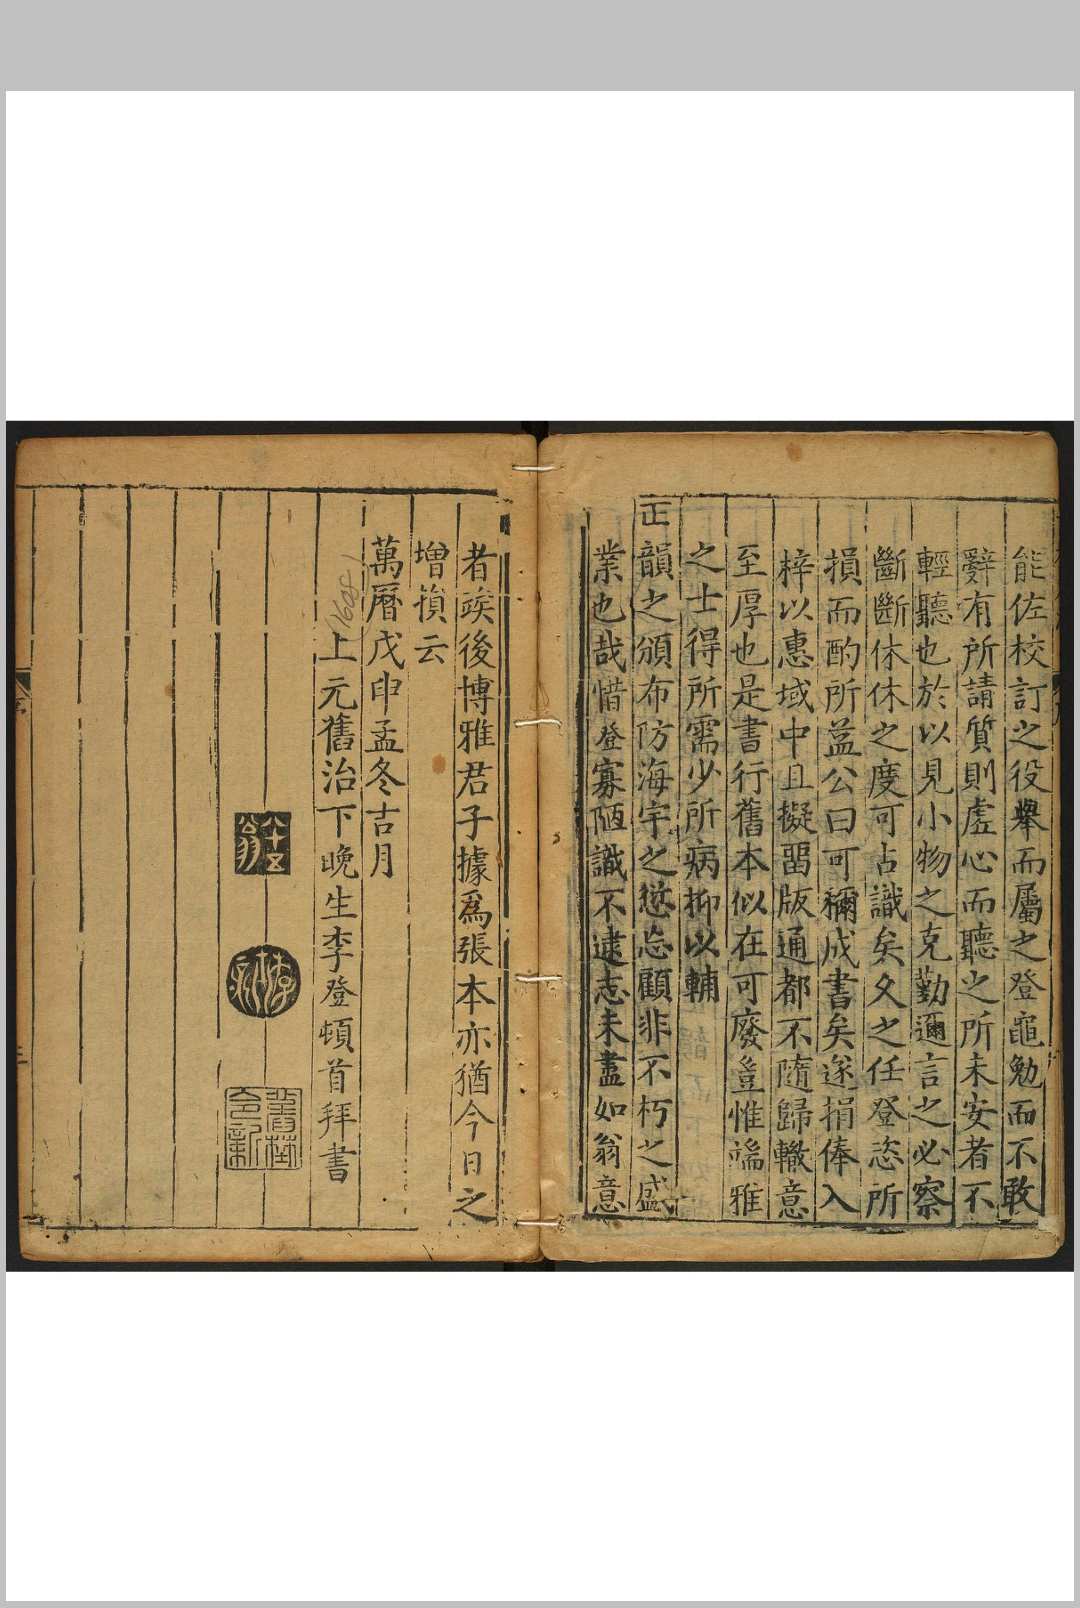 能佐校訂之役舉而屬之登黽勉而不敢
辭有所請質則虛心而聽之所未安者不
輕聽也於以見小物之克勤邇言之必察
斷斷休休之度可占識矣夊之任登恣所
損而酌所益公曰可稱成書矣遂捐俸入
梓以惠域中且擬畱版通都不隨歸轍意
至厚也是書行舊本似在可廢豈惟端雅
之士得所需少所病抑以輔
正韻之頒布防海宇之愆忘顧非不朽之盛
業也哉惜登寡陋識不逮志未盡如翁意
者竢後博雅君子據爲張本亦猶今日之
增損云
萬曆戊申孟冬吉月
1608
上元舊治下晚生李登頓首拜書
八十五翁